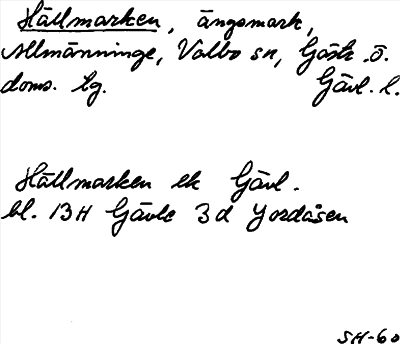 Hällmarken, ängsmark,
Allmänninge, Valbo sn, Gästr. ö.
doms. tg. Gävl. l.
Hällmarken ek Gävl.
bl. 13H Gävle 3d Jordåsen
SH-60